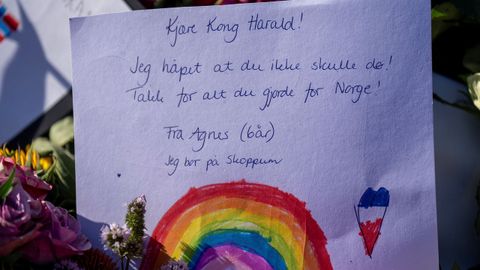 Kjære Kong Harald!
Jeg håpet at du ikke skulle dø!
Takk for alt du gjorde for Norge!
Fra Agnes (6år)
Jeg bor på Skoppum